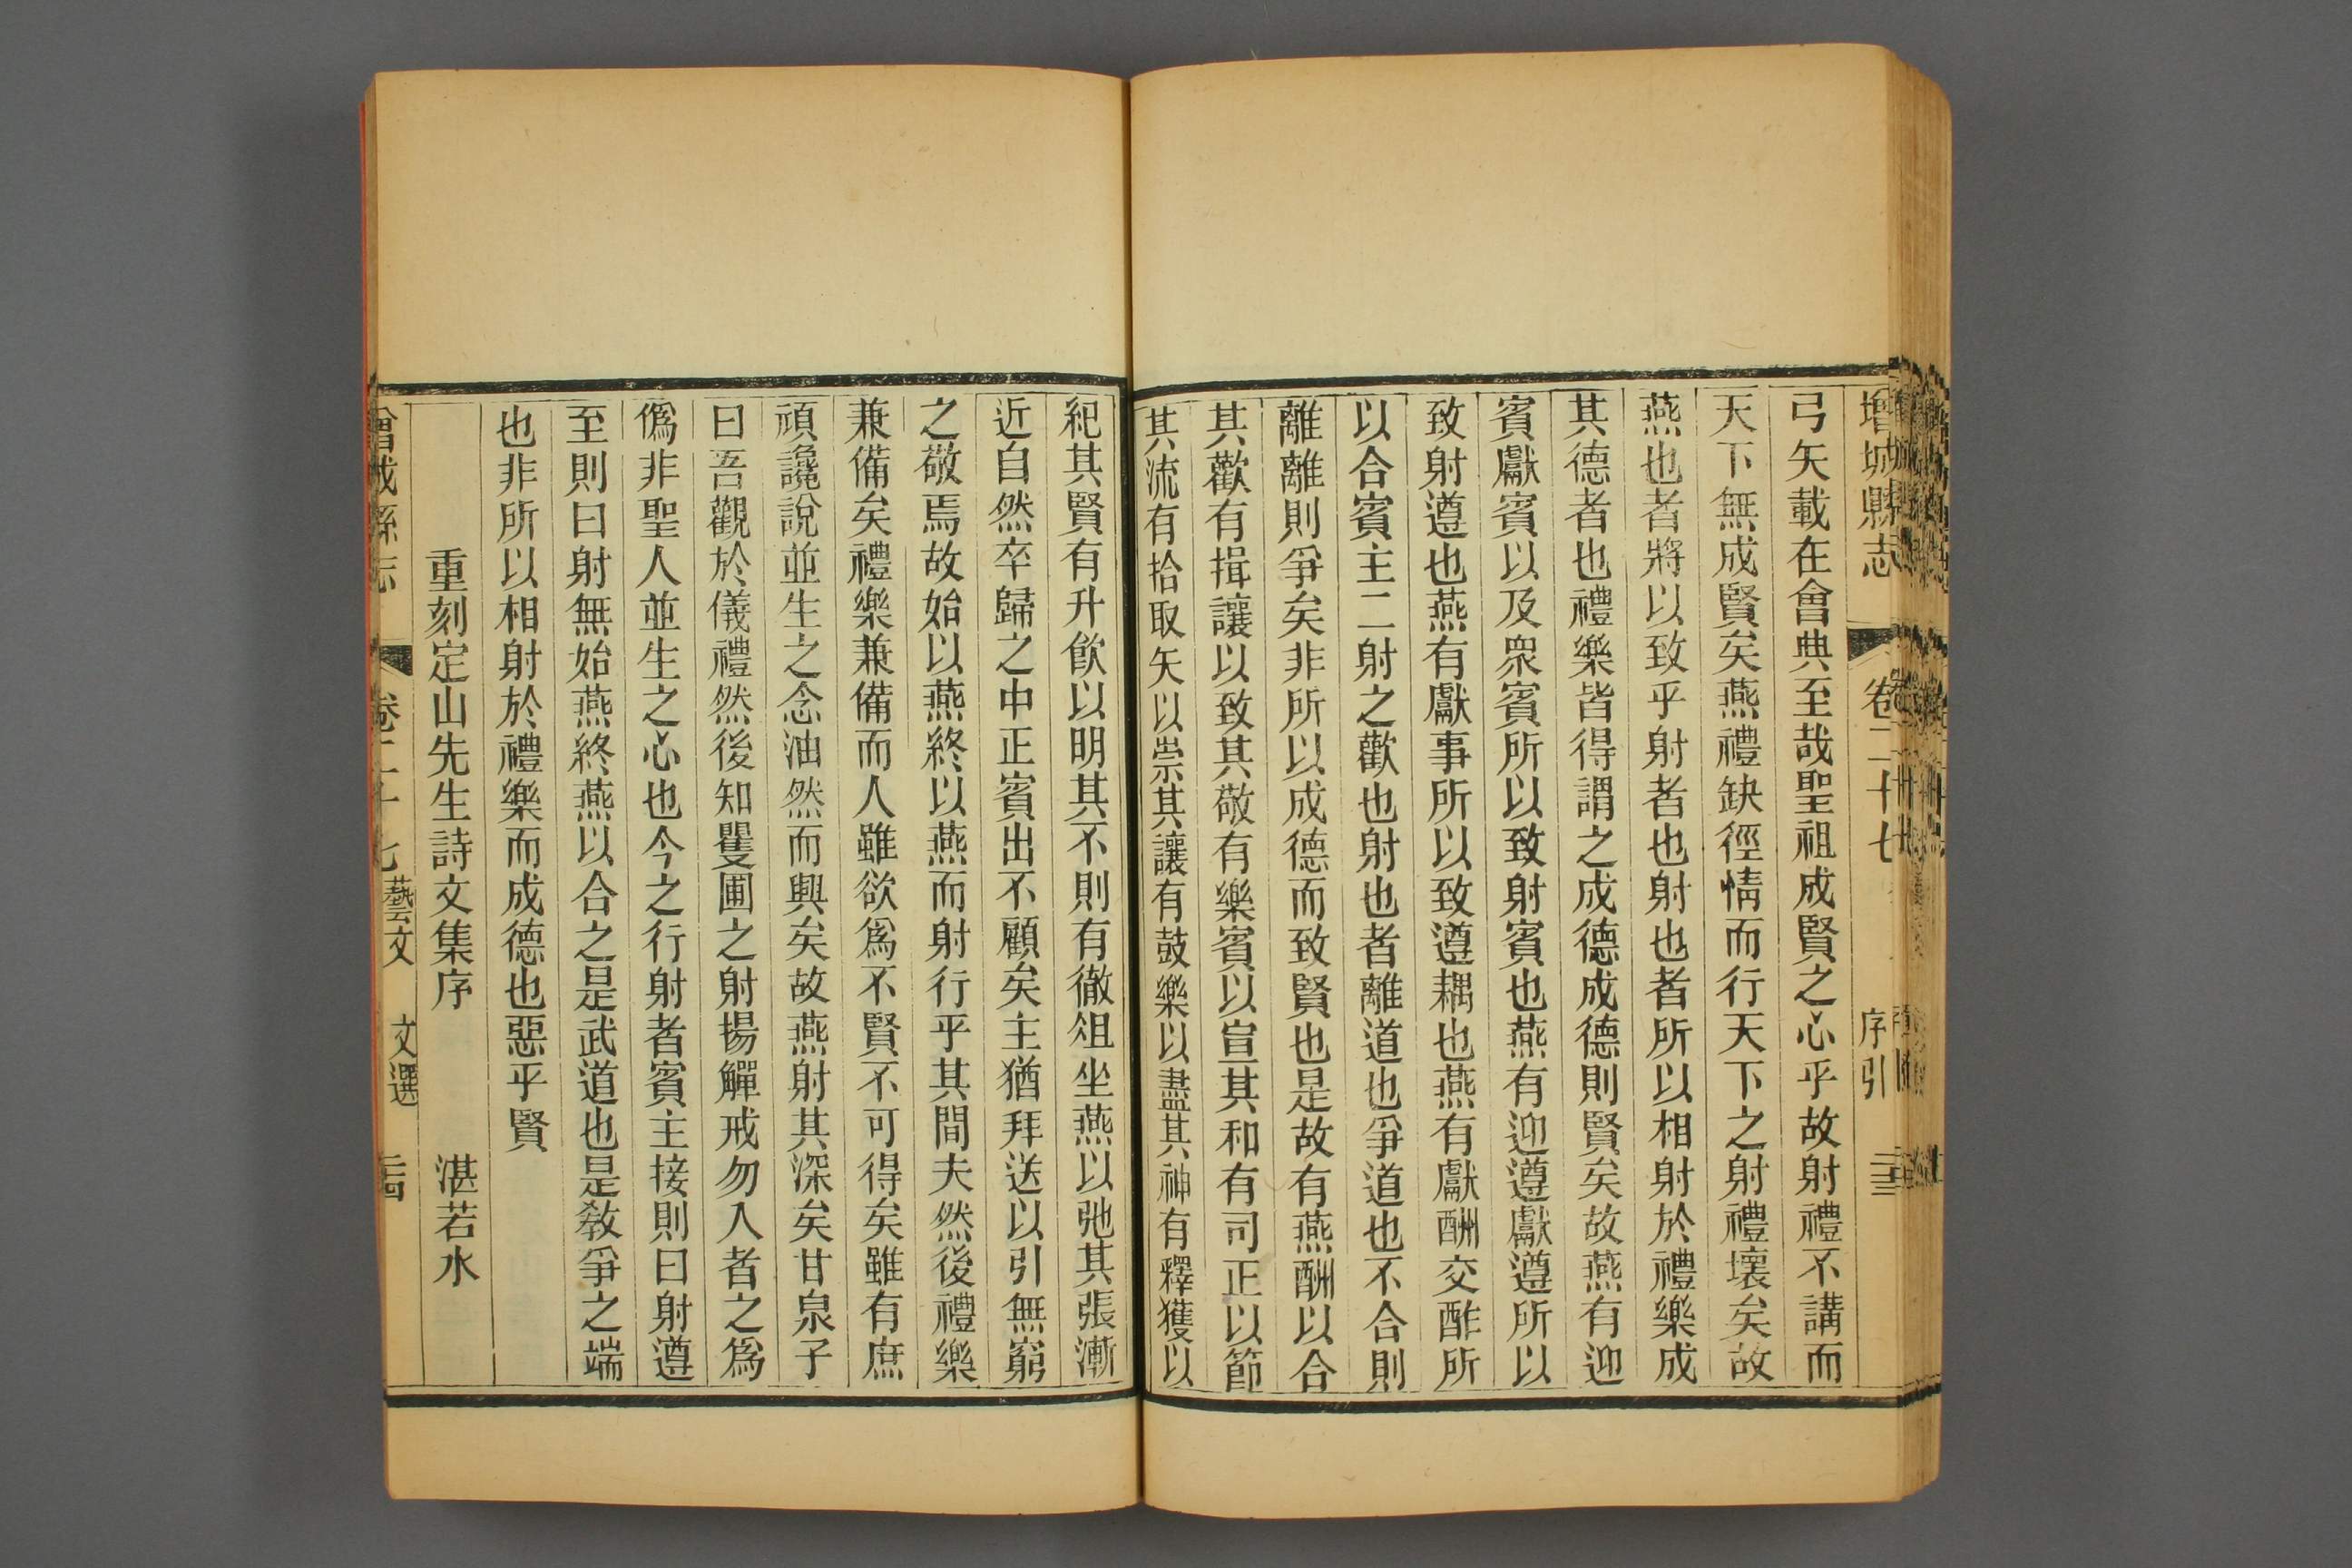 增城縣志 卷二十七 序引 三
弓矢載在會典至哉聖祖成賢之心乎故射禮不講而
天下無成賢矣燕禮缺徑情而行天下之射禮壞矣故
燕也者將以致乎射者也射也者所以相射於禮樂成
其德者也禮樂皆得謂之成德成德則賢矣故燕有迎
賓獻賓以及眾賓所以致射賓也燕有迎遵獻遵所以
致射遵也燕有獻事所以致遵耦也燕有獻酬交酢所
以合賓主二射之歡也射也者離道也爭道也不合則
離離則爭矣非所以成德而致賢也是故有燕酬以合
其歡有揖讓以致其敬有樂賓以宣其和有司正以節
其流有拾取矢以崇其讓有鼓樂以盡其神有釋獲以
紀其賢有升飲以明其不則有徹俎坐燕以弛其張漸
近自然卒歸之中正賓出不顧矣主猶拜送以引無窮
之敬焉故始以燕終以燕而射行乎其間夫然後禮樂
兼備矣禮樂兼備而人雖欲爲不賢不可得矣雖有庶
頑讒說並生之念油然而興矣故燕射其深矣甘泉子
曰吾觀於儀禮然後知矍圃之射揚觶戒勿入者之爲
僞非聖人並生之心也今之行射者賓主接則曰射遵
至則曰射無始燕終燕以合之是武道也是敎爭之端
也非所以相射於禮樂而成德也惡乎賢
重刻定山先生詩文集序 湛若水
曾城縣志 卷二十七 藝文 文選 三四